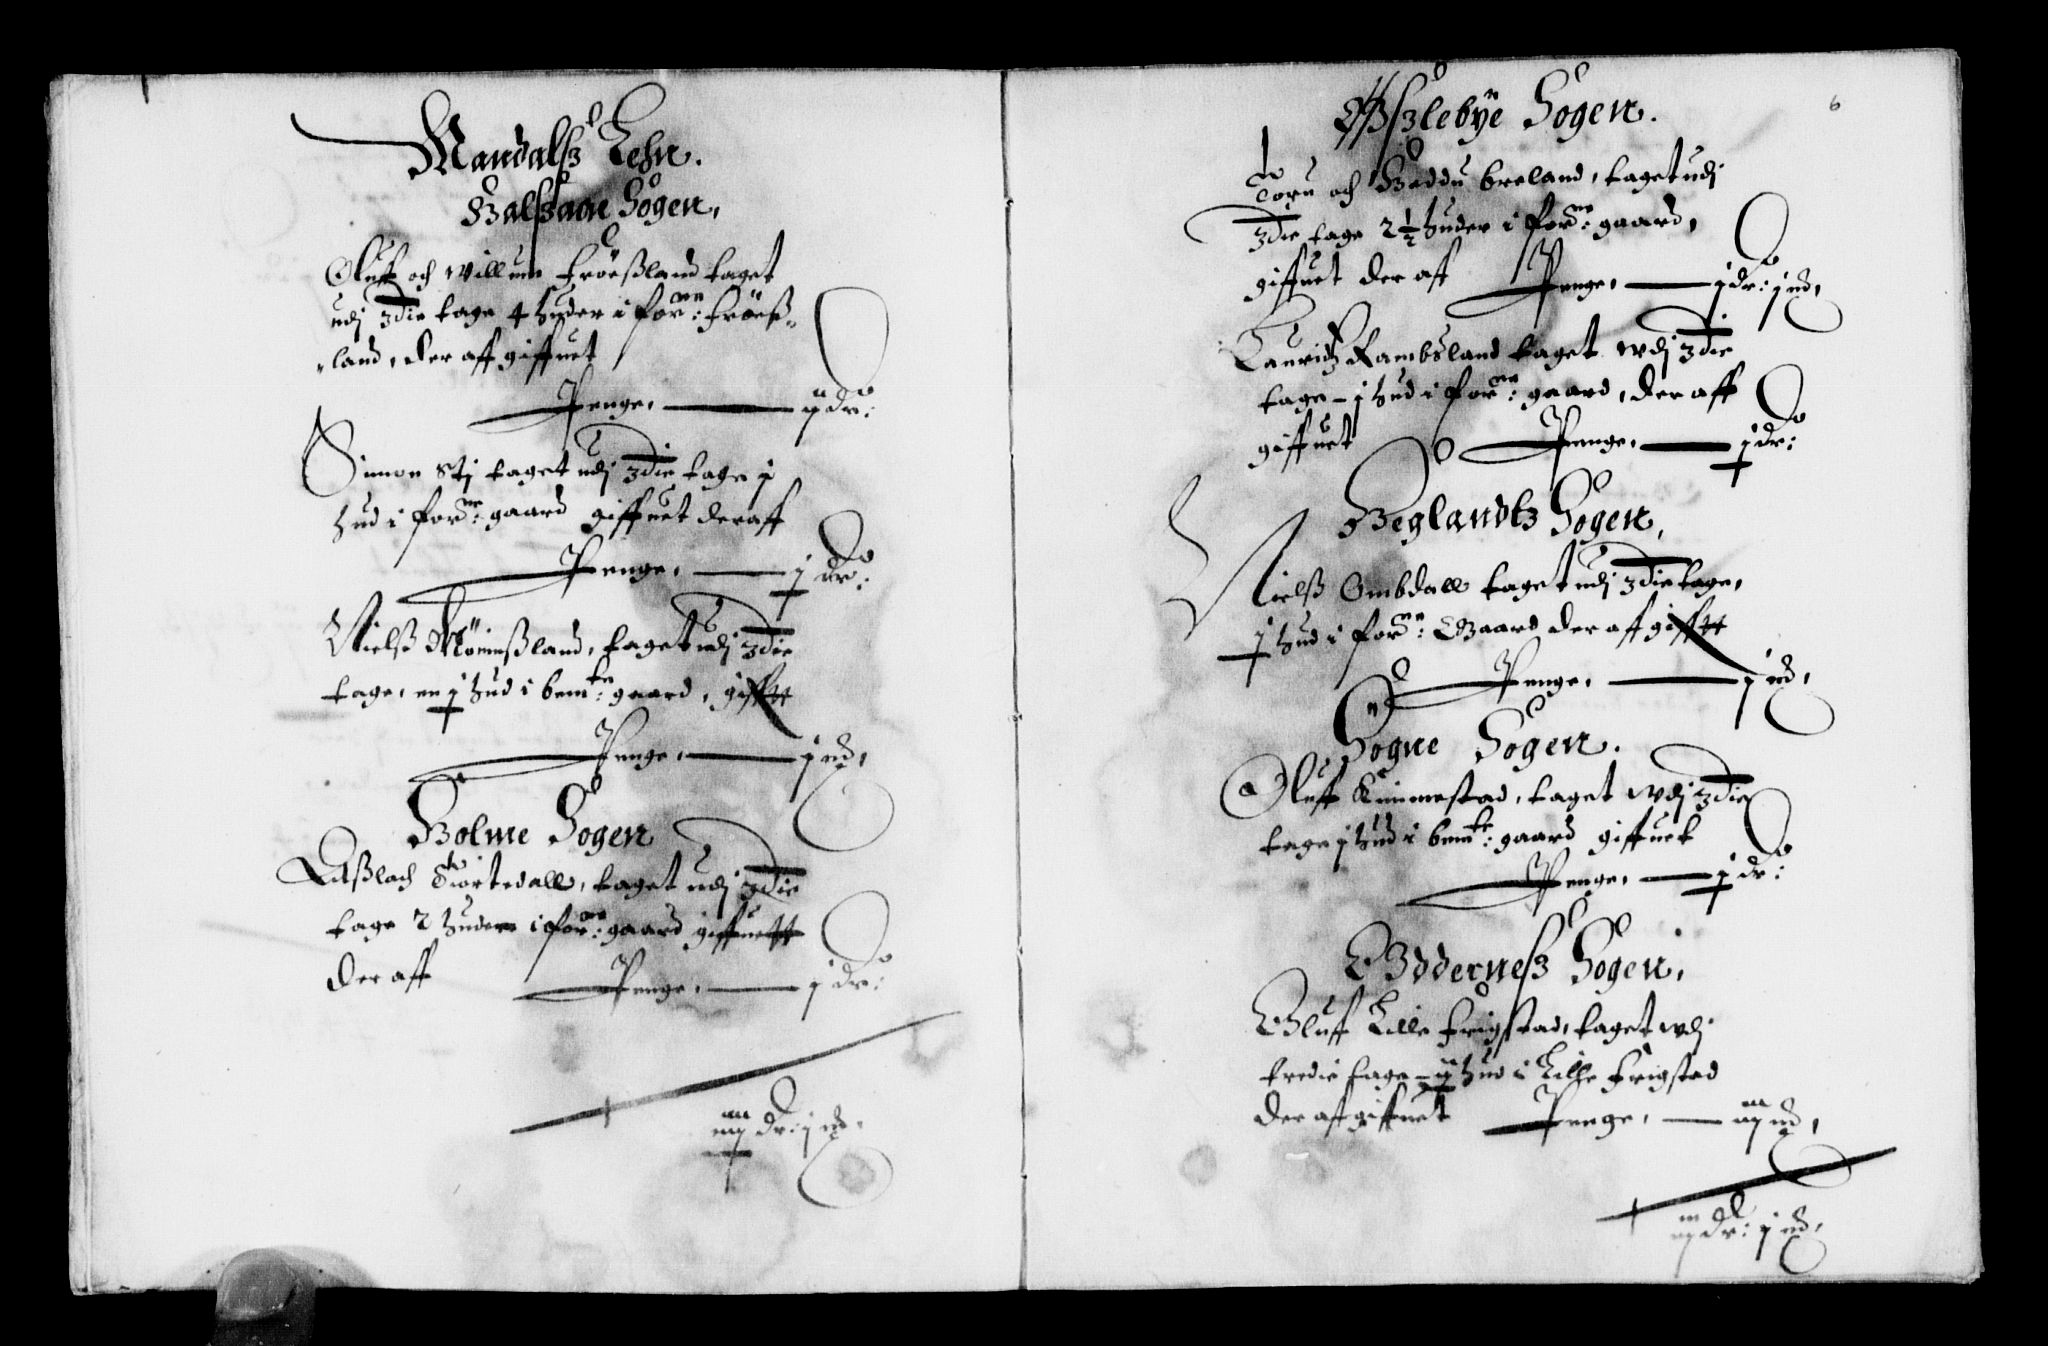 Mandalß Lehn.
Halßaae Sogen,
Oluff och Willum Fröeßland taget
udj 3die tage 4 huder i for: ne Fröeß-
land, der aff giffuet
Penge, ij dr:
Simon Stj taget udj 3die tage j
hud i for: ne gaard giffuet der aff
Penge, j dr:
Nielß taget udj 3die
tage, en ½ hud i bem: te gaard, gifftt
Penge, j
Holme Sogen
Aßlach taget udj 3die
tage 2 huder i for: ne gaard giffuett
der aff Penge, j dr:
iiij dr: j
6
Øßlebye Sogen.
Toru och Boddu Breland, taget udj
3die tage 2½ huder i for: ne gaard,
giffuet der aff Penge, j dr: j
Lauridz Rambsland taget wdj 3die
tage - j hud i for: ne gaard, der aff
giffuet Penge, j dr:
Heglandtz Sogen,
Nielß Ombdall taget udj 3die tage,
½ hud i for: ne Gaard der aff gifftt
Penge, j
Sogne Sogen.
Oluff Kimmestad, taget wdj 3die
tage j hud i bem: te gaard giffuet
Penge, j dr:
Odderneß Sogen,
Oluff Lille Frigstad, taget wdj
tredie tage hud i Lille Frigstad
der aff giffuet Penge, iij
iij dr: j